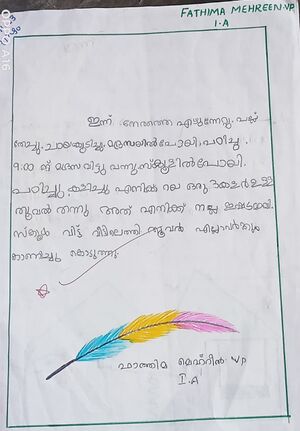 FATHIMA MEHREEN.VP
I.A
ഇന്ന് നേരത്തെ എഴുന്നേറ്റു. പല്ല്
തേച്ചു. ചായകുടിച്ചു. മദ്രസയിൽ പോയി, പഠിച്ചു.
9:00 ന് മദ്രസ വിട്ടു വന്നു. സ്കൂളിൽ പോയി.
പഠിച്ചു കളിച്ചു എനിക്ക് ഒരു 3 കളർ ഉള്ള
തൂവൽ തന്നു അത് എനിക്ക് നല്ല ഇഷ്ടമായി.
സ്കൂൾ വിട്ട് വീട്ടിലെത്തി തൂവൽ എല്ലാവർക്കും
കാണിച്ചു കൊടുത്തു.
ഫാത്തിമ മെഹ്റിൻ VP
I.A